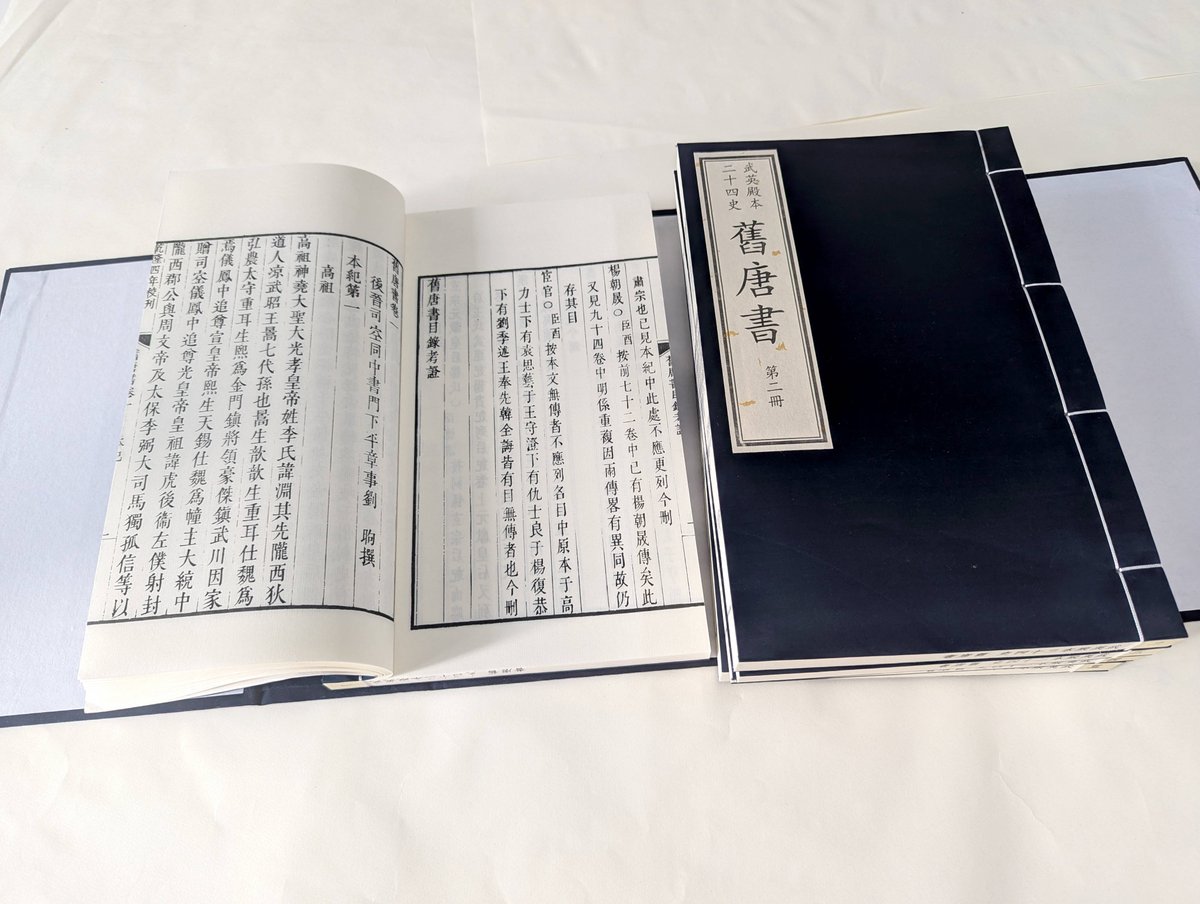 武英殿本
二十四史
舊唐書
第二冊
肅宗也已見本紀中此處不應更列今刪
楊朝晟○臣酉按前七十二卷中已有楊朝晟傳矣此
又見九十四卷中明係重複因兩傳畧有異同故仍
存其目
宦官○臣酉按本文無傳者不應列名目中原本于高
力士下有袁思藝于王守澄下有仇士良于楊復恭
下有劉季述王奉先韓全誨皆有目無傳者也今刪
舊唐書目錄考證
舊唐書卷一
後晉司空同中書門下平章事劉 昫撰
本紀第一
高祖
高祖神堯大聖大光孝皇帝姓李氏諱淵其先隴西狄
道人凉武昭王暠七代孫也暠生歆歆生重耳仕魏爲
弘農太守重耳生熙爲金門鎮將領豪傑鎮武川因家
焉儀鳳中追尊宣皇帝熙生天錫仕魏爲幢主大統中
贈司空儀鳳中追尊光皇帝皇祖諱虎後衞左僕射封
隴西郡公與周文帝及太保李弼大司馬獨孤信等以
乾隆四年校刊